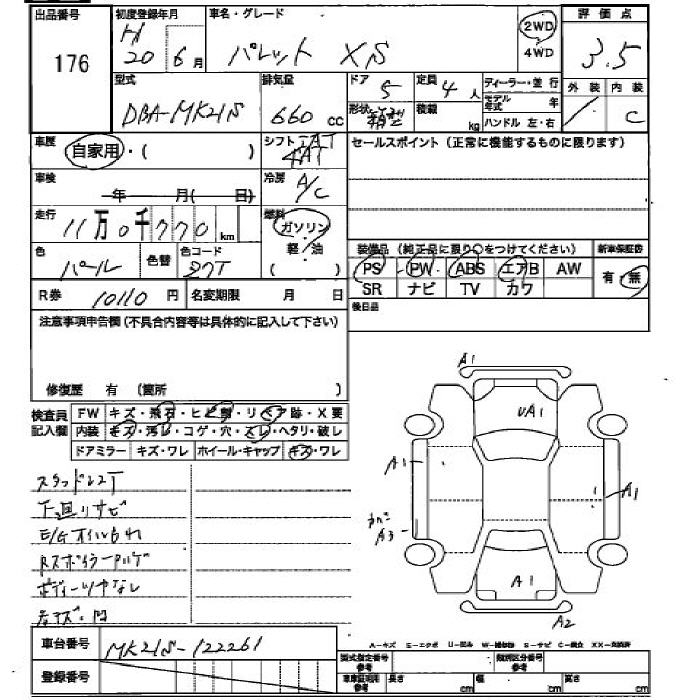 出品番号 初度登録年月 車名・グレード 評価点
176 H20 6月 パレット XS 2WD 4WD 3.5
型式 排気量 ドア 定員 ディーラー・並行 外装 内装
DBA-MK21S 660cc 5 4人 モデル年式 年
形状 箱型 積載 kg ハンドル 左・右 C
車歴 自家用・( ) シフト 4AT セールスポイント(正常に機能するものに限ります)
車検 年 月( 日) 冷房 A/C
走行 11万0千770km 燃料 ガソリン
軽油
( )
色 パール 色替 色コード Z7T
装備品(純正品に限り○をつけてください) 新車保証書
PS PW ABS エアB AW 有・無
SR ナビ TV カワ
R券 10110円 名変期限 月 日 後日品
注意事項申告欄(不具合内容等は具体的に記入して下さい)
修復歴 有 (箇所 )
検査員記入欄 FW キズ・飛石・ヒビ割・リペア跡・X要
内装 キズ・汚レ・コゲ・穴・スレ・ヘタリ・破レ
ドアミラー キズ・ワレ ホイール・キャップ キズ・ワレ
A1
UA1
A1
A1
A3
A1
A2
スタッドレスT
下廻りサビ
E/Gオイルもれ
車台番号 MK21S-122261
登録番号
A-キズ E-エクボ U-凹ミ W-補修跡 S-サビ C-腐食 XX-交換済
型式指定番号 参考 類別区分番号 参考
車庫証明用 参考 長さ cm 幅 cm 高さ cm